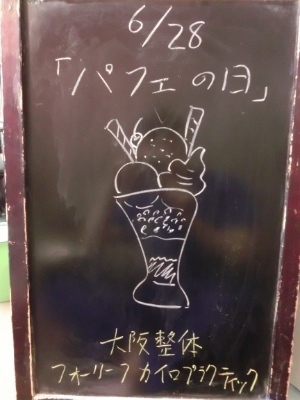 6/28
「パフェの日」
大阪整体
フォーリーフカイロプラクティック